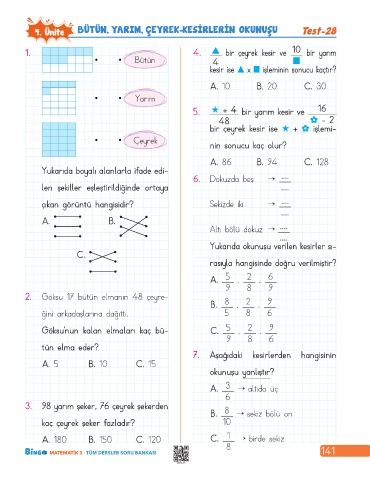 4. Ünite BÜTÜN, YARIM, ÇEYREK-KESİRLERİN OKUNUŞU Test-28
1.
Bütün
Yarım
Çeyrek
Yukarıda boyalı alanlarla ifade edi-
len şekiller eşleştirildiğinde ortaya
çıkan görüntü hangisidir?
A. B.
C.
2. Göksu 17 bütün elmanın 48 çeyre-
ğini arkadaşlarına dağıttı.
Göksu'nun kalan elmaları kaç bü-
tün elma eder?
A. 5 B. 10 C. 15
3. 98 yarım şeker, 76 çeyrek şekerden
kaç çeyrek şeker fazladır?
A. 180 B. 150 C. 120
BinGO MATEMATİK 3 - TÜM DERSLER SORU BANKASI
4. ▲/4 bir çeyrek kesir ve 10/■ bir yarım
kesir ise ▲ x ■ işleminin sonucu kaçtır?
A. 10 B. 20 C. 30
5. ★ + 4/48 bir yarım kesir ve 16/✿ - 2
bir çeyrek kesir ise ★ + ✿ işlemi-
nin sonucu kaç olur?
A. 86 B. 94 C. 128
6. Dokuzda beş → ..../....
Sekizde iki → ..../....
Altı bölü dokuz → ..../....
Yukarıda okunuşu verilen kesirler sı-
rasıyla hangisinde doğru verilmiştir?
A. 5/9 . 2/8 . 6/9
B. 8/5 . 2/8 . 9/6
C. 5/9 . 2/8 . 9/6
7. Aşağıdaki kesirlerden hangisinin
okunuşu yanlıştır?
A. 3/6 → altıda üç
B. 8/10 → sekiz bölü on
C. 1/8 → birde sekiz
141